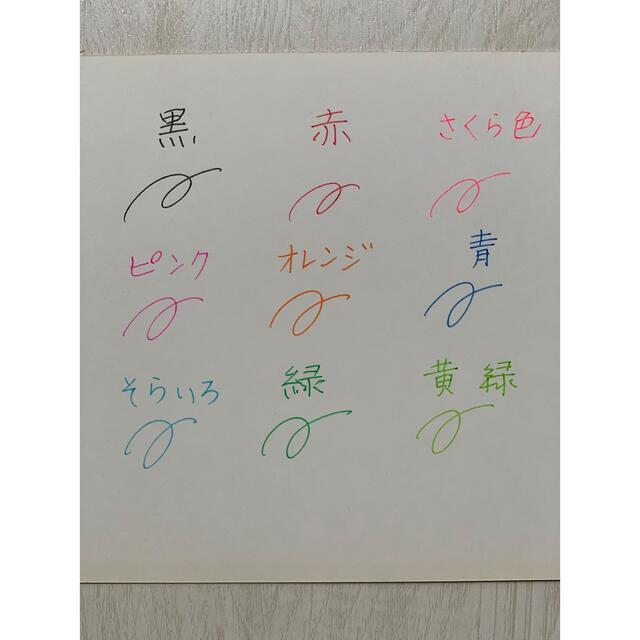 黒 赤 さくら色
ピンク オレンジ 青
そらいろ 緑 黄緑